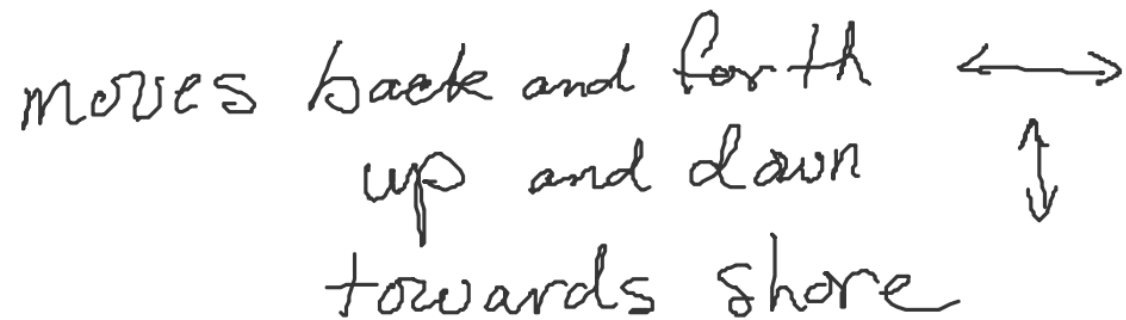 moves back and forth ↔
up and down ↕
towards shore